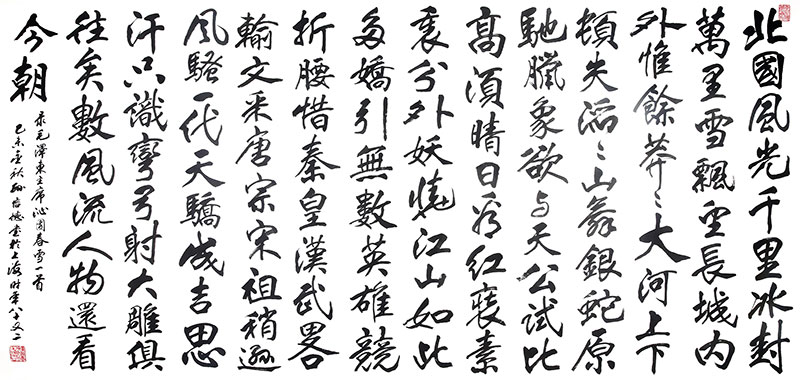 北國風光千里冰封
萬里雪飄望長城内
外惟餘莽〻大河上下
頓失滔〻山舞銀蛇原
馳臘象欲与天公試比
高須晴日看紅裝素
裹分外妖嬈江山如此
多嬌引無數英雄競
折腰惜秦皇漢武畧
輸文采唐宗宋祖稍遜
風騷一代天驕成吉思
汗只識彎弓射大雕俱
往矣數風流人物還看
今朝
录毛澤東主席沁園春雪一首
己未秋孫書於上海时年八十又二